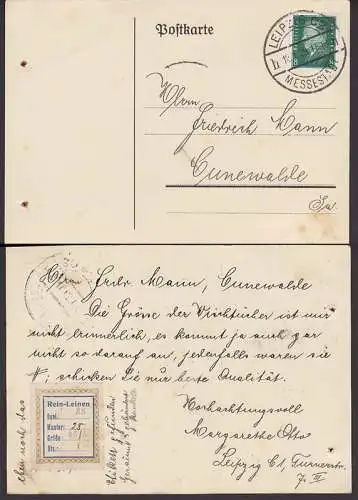 Postkarte
LEIPZIG C
MESSESTADT
Herrn
Friedrich Mann
Cunewalde
Sa.
Herrn Frdr. Mann, Cunewalde
Die Grösse der Wischtücher ist mir
nicht erinnerlich, es kommt ja auch gar
nicht so darauf an, jedenfalls waren sie
schicken Sie nur beste Qualität.
Hochachtungsvoll
Margarethe Otto
Leipzig C1, Turnerstr.
Rein-Leinen
Muster: 25
Größe
Stz.
eben noch das